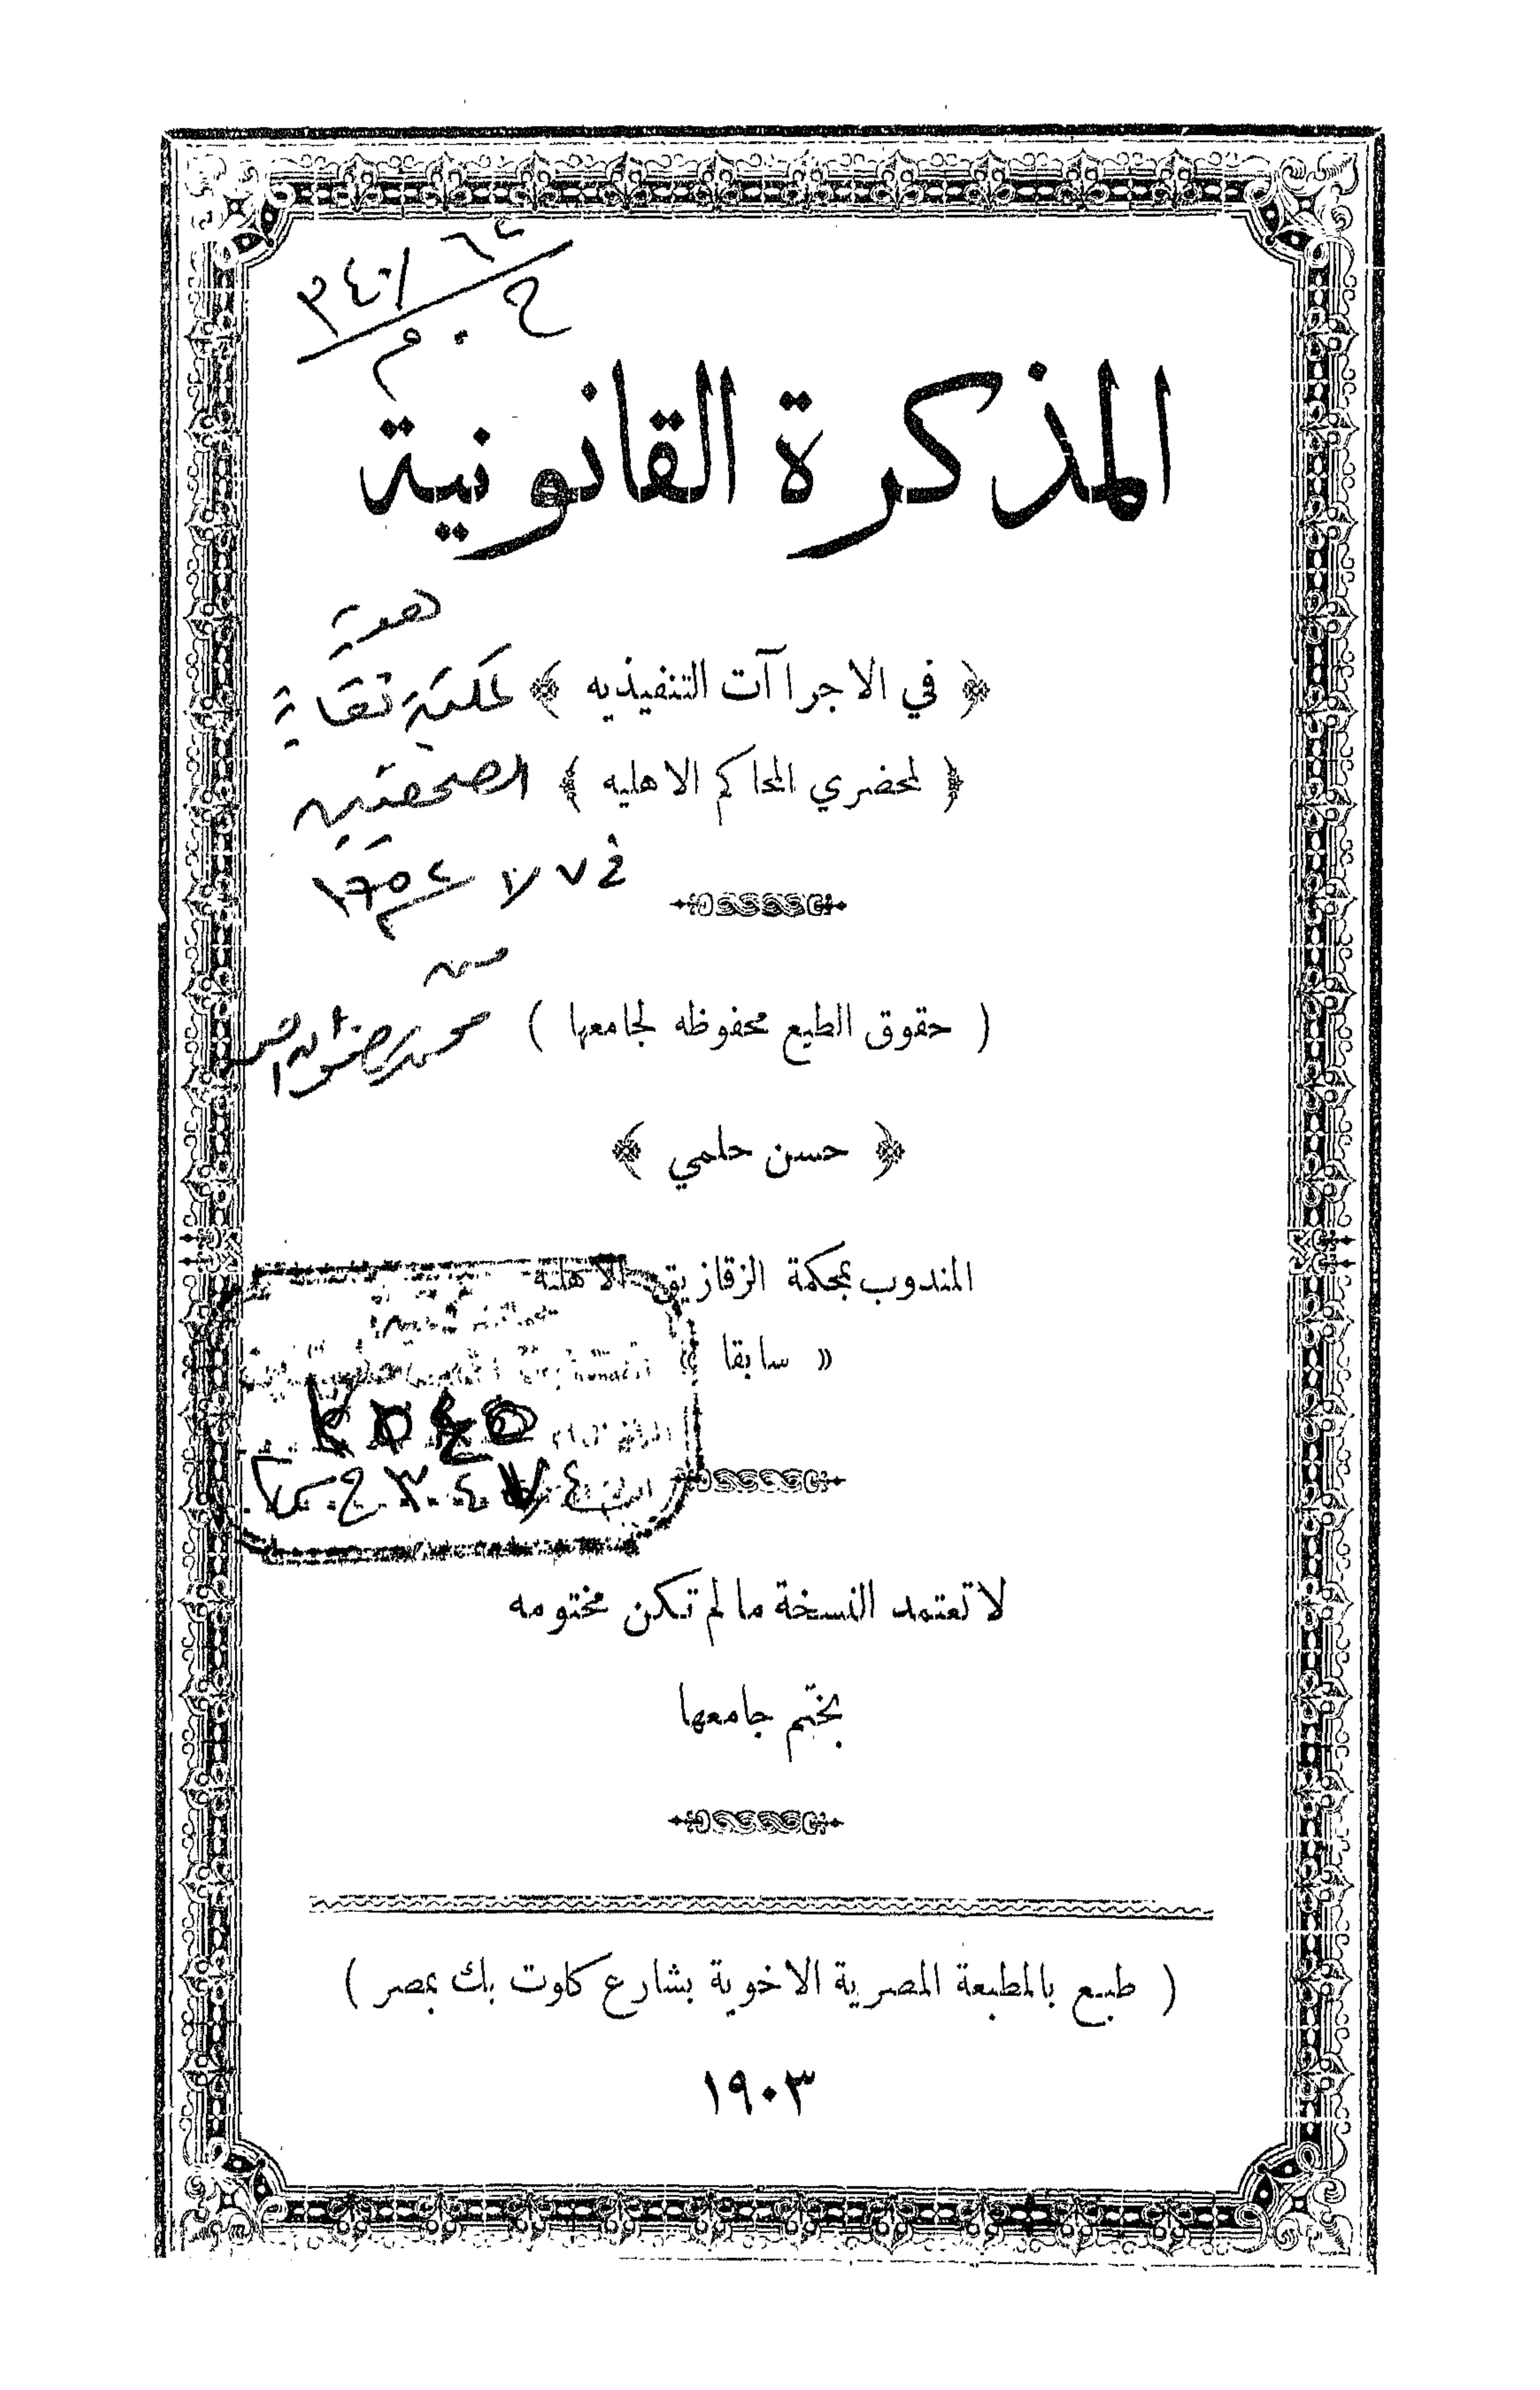 المذكرة القانونية
هدية
﴿ في الاجراآت التنفيذيه ﴾
لمكتبة نقابة
﴿ لمحضري المحاكم الاهليه ﴾
الصحفيين
في
من
( حقوق الطبع محفوظه لجامعها )
محمد رضوان
﴿ حسن حلمي ﴾
المندوب بمحكمة الزقازيق الاهليه
« سابقا »
لا تعتمد النسخة ما لم تكن مختومه
بختم جامعها
( طبع بالمطبعة المصرية الاخوية بشارع كلوت بك بمصر )
١٩٠٣